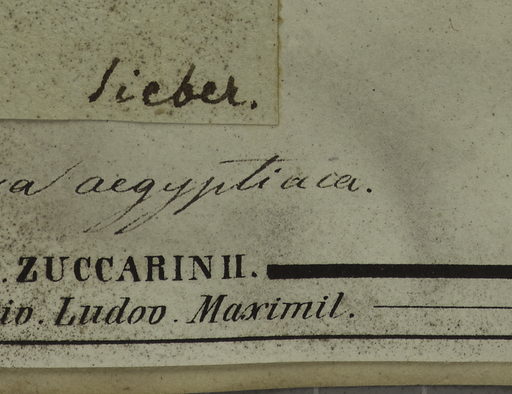 Sieber.
aegyptiaca.
. ZUCCARINII.
io. Ludov. Maximil.